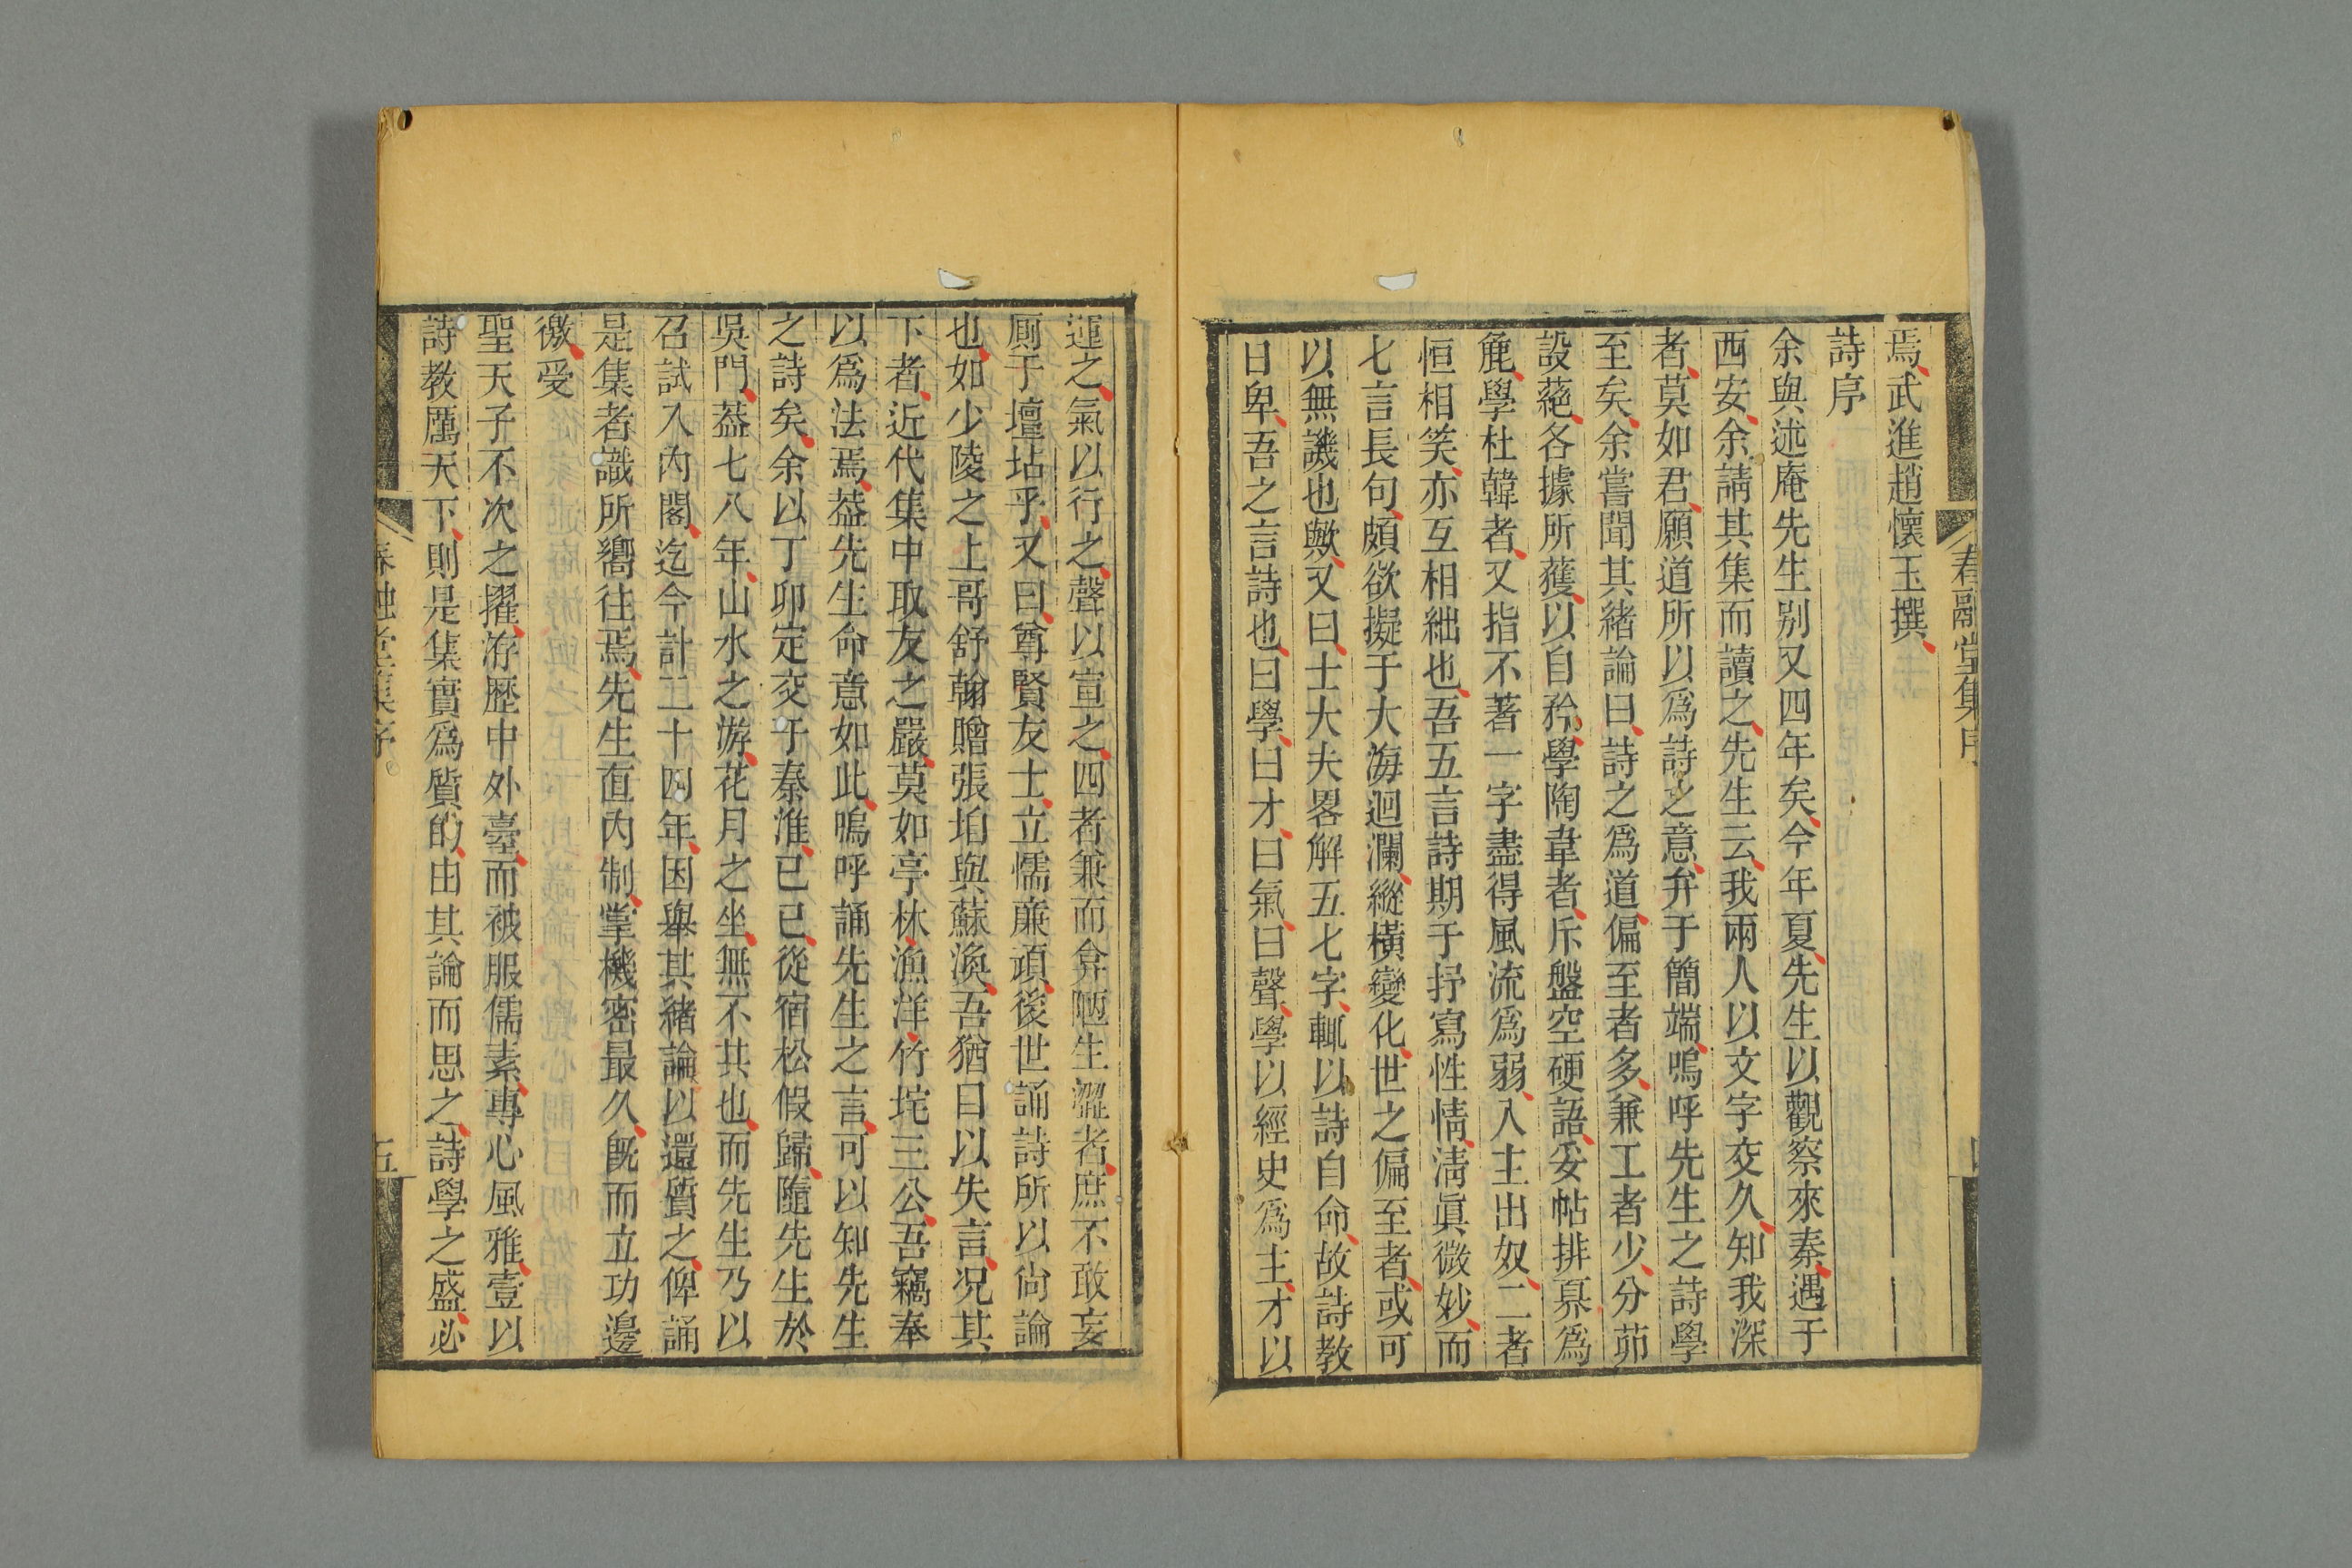 春融堂集序
焉武進趙懷玉撰
詩序
余與述庵先生別又四年矣今年夏先生以觀察來秦遇于
西安余請其集而讀之先生云我兩人以文字交久知我深
者莫如君願道所以爲詩之意弁于簡端嗚呼先生之詩學
至矣余嘗聞其緒論曰詩之爲道偏至者多兼工者少分茆
設蕝各據所獲以自矜學陶韋者斥盤空硬語妥帖排奡爲
麄學杜韓者又指不著一字盡得風流爲弱入主出奴二者
恒相笑亦互相絀也吾五言詩期于抒寫性情淸眞微妙而
七言長句頗欲擬于大海迴瀾縱橫變化世之偏至者或可
以無譏也歟又曰士大夫畧解五七字輒以詩自命故詩教
日卑吾之言詩也曰學曰才曰氣曰聲學以經史爲主才以
運之氣以行之聲以宣之四者兼而弇陋生澀者庶不敢妄
厠于壇坫乎又曰尊賢友士立懦廉頑後世誦詩所以尙論
也如少陵之上哥舒翰贈張垍與蘇渙吾猶曰以失言况其
下者近代集中取友之嚴莫如亭林漁洋竹垞三公吾竊奉
以爲法焉葢先生命意如此嗚呼誦先生之言可以知先生
之詩矣余以丁卯定交于秦淮已巳從宿松假歸隨先生於
吳門葢七八年山水之游花月之坐無不其也而先生乃以
召試入內閣迄今計二十四年因舉其緒論以還質之俾誦
是集者識所嚮往焉先生直內制掌機密最久旣而立功邊
徼受
聖天子不次之擢洊歷中外臺而被服儒素專心風雅壹以
詩教厲天下則是集實爲質的由其論而思之詩學之盛必
春融堂集序
五